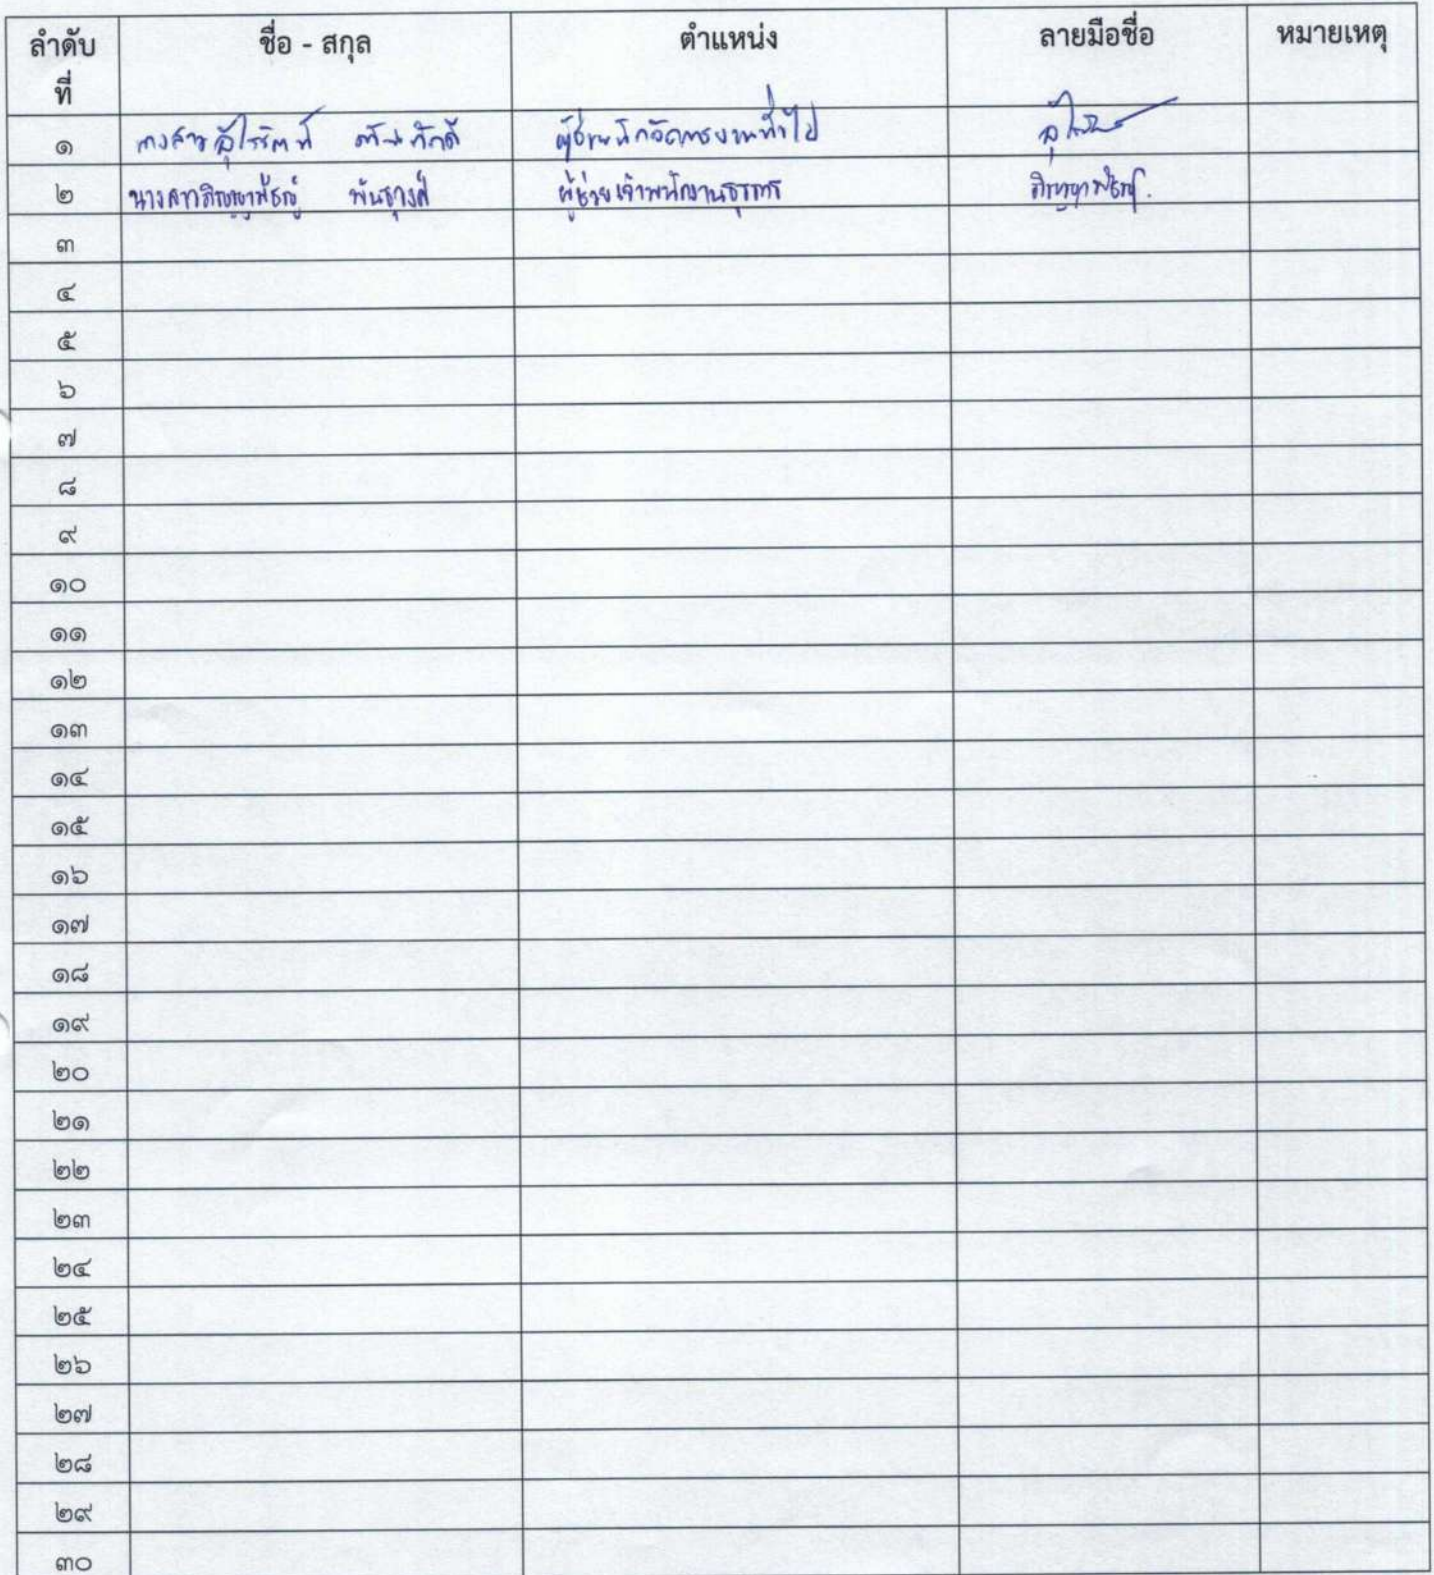 ลำดับที่ ชื่อ - สกุล ตำแหน่ง ลายมือชื่อ หมายเหตุ
๑ นางสาว ผู้ช่วยนักจัดการงานทั่วไป
๒ นางสาวภิญญาพัชญ์ พันธุวงศ์ ผู้ช่วยเจ้าพนักงานธุรการ ภิญญาพัชญ์.
๓
๔
๕
๖
๗
๘
๙
๑๐
๑๑
๑๒
๑๓
๑๔
๑๕
๑๖
๑๗
๑๘
๑๙
๒๐
๒๑
๒๒
๒๓
๒๔
๒๕
๒๖
๒๗
๒๘
๒๙
๓๐